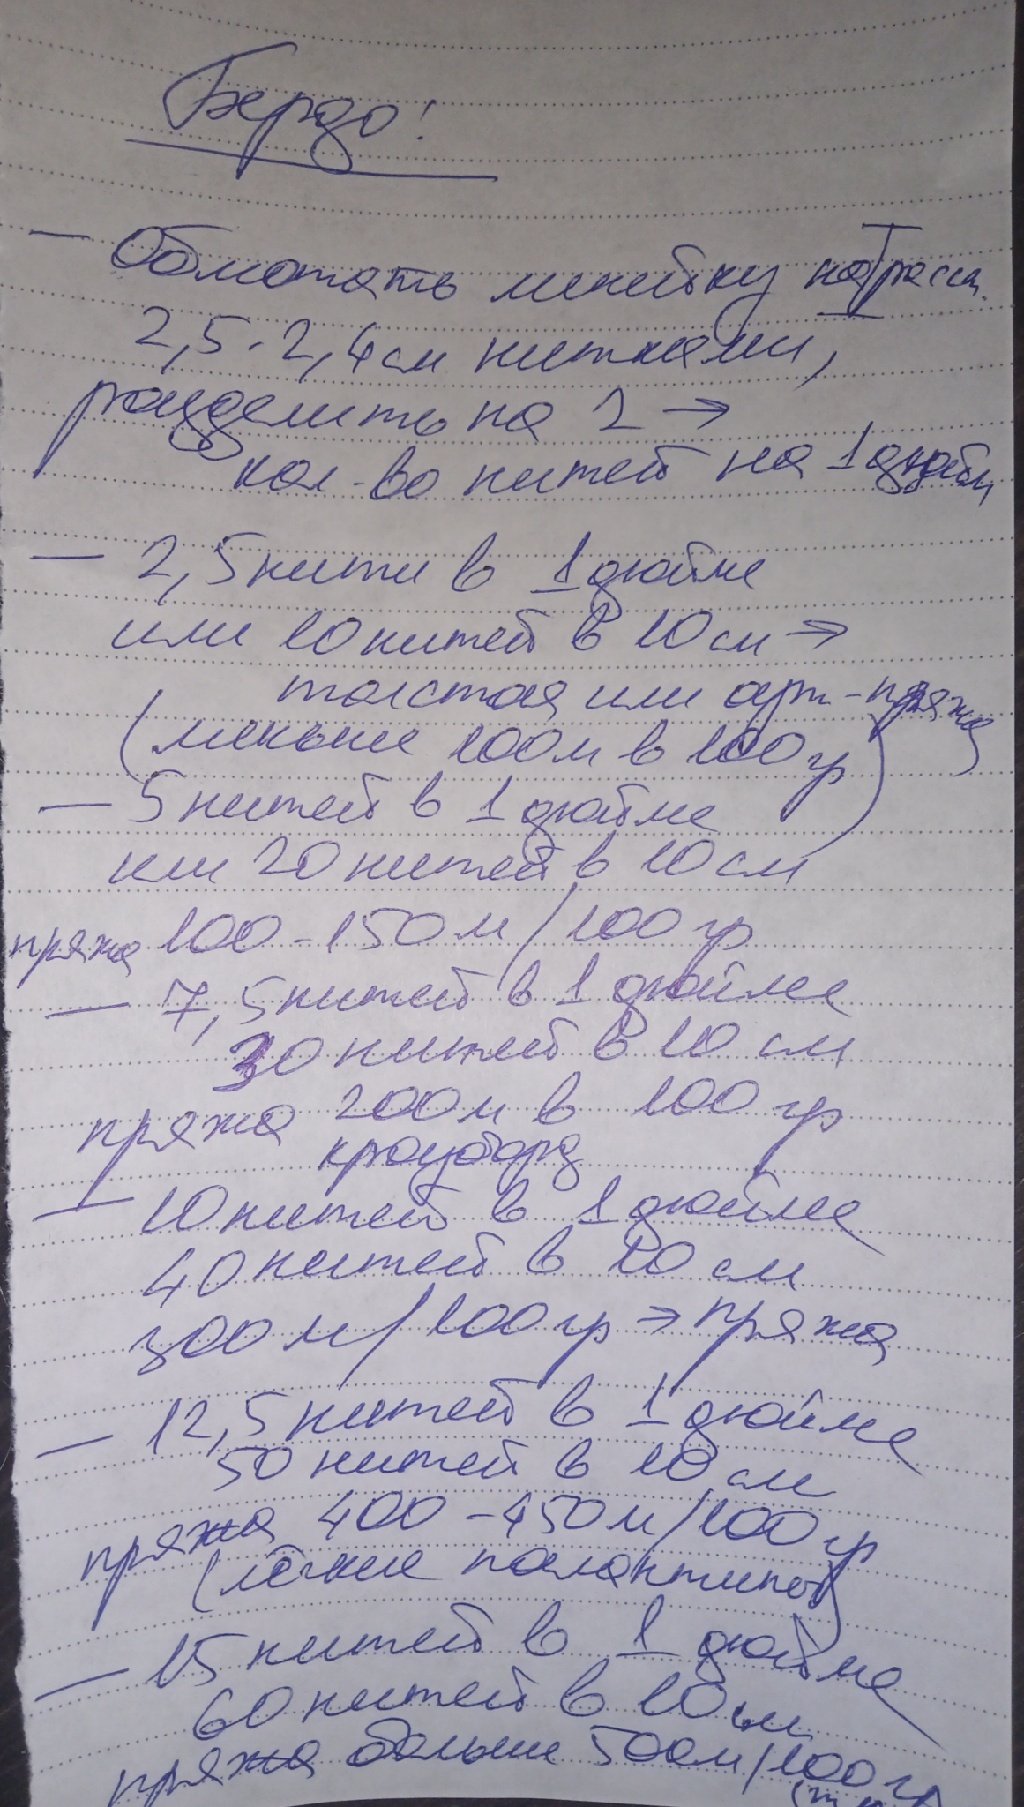 Бердо!
— Обмотать линейку на расст.
2,5-2,4 см нитками,
разделить на 2 →
кол-во нитей на 1 дюйм
— 2,5 нити в 1 дюйме
или 10 нитей в 10 см →
толстая или арт-пряжа
(меньше 100 м в 100 гр)
— 5 нитей в 1 дюйме
или 20 нитей в 10 см
пряжа 100-150 м/100 гр
— 7,5 нитей в 1 дюйме
30 нитей в 10 см
пряжа 200 м в 100 гр
— 10 нитей в 1 дюйме
40 нитей в 10 см
300 м/100 гр → пряжа
— 12,5 нитей в 1 дюйме
50 нитей в 10 см
пряжа 400-450 м/100 гр
(лёгкие палантины)
— 15 нитей в 1 дюйме
60 нитей в 10 см
пряжа больше 500 м/100 гр